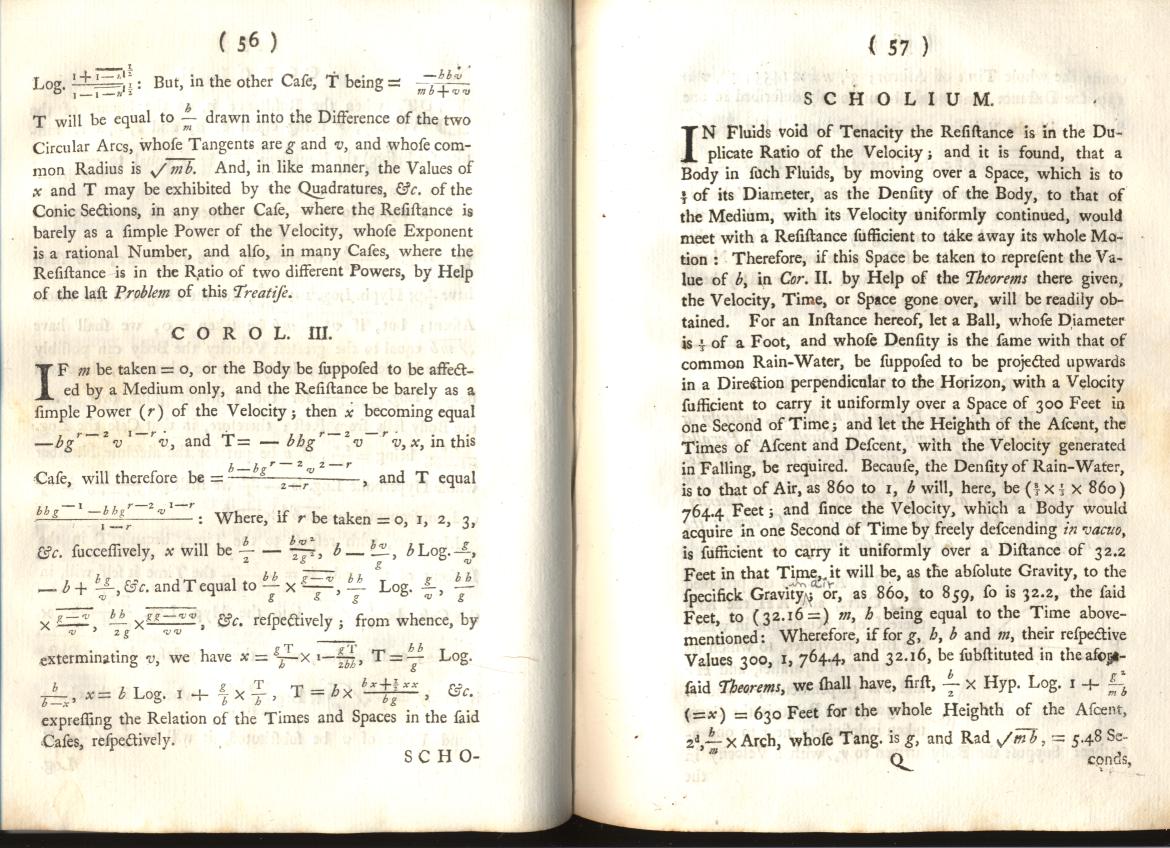 ( 56 )
Log. 1+1—n²|½ / 1—1—n²|½ : But, in the other Caſe, Ṫ being = —bbv̇ / mb+vv
T will be equal to b/m drawn into the Difference of the two
Circular Arcs, whoſe Tangents are g and v, and whoſe com-
mon Radius is √mb. And, in like manner, the Values of
x and T may be exhibited by the Quadratures, &c. of the
Conic Sections, in any other Caſe, where the Reſiſtance is
barely as a ſimple Power of the Velocity, whoſe Exponent
is a rational Number, and alſo, in many Caſes, where the
Reſiſtance is in the Ratio of two different Powers, by Help
of the laſt Problem of this Treatiſe.
C O R O L. III.
IF m be taken = 0, or the Body be ſuppoſed to be affect-
ed by a Medium only, and the Reſiſtance be barely as a
ſimple Power (r) of the Velocity; then ẋ becoming equal
—bg^{r—2} v^{1—r} v̇, and T= — bhg^{r—2} v^{—r} v, x, in this
Caſe, will therefore be = b—bg^{r—2} v^{2—r} / 2—r, and T equal
bhg^{—1}—bhg^{r—2} v^{1—r} / 1—r : Where, if r be taken = 0, 1, 2, 3,
&c. ſucceſſively, x will be b/2 — bv²/2g², b — bv/g, b Log. g/v,
— b + bg/v, &c. and T equal to bh/g × g—v/g, bh/g Log. g/v, bh/g
× g—v/v, bh/2g × gg—vv/vv, &c. reſpectively; from whence, by
exterminating v, we have x = gT/h × 1—gT/2bh, T = bh/g Log.
b/b—x, x = b Log. 1 + g/b × T/h, T = h × bx+½xx/bg, &c.
expreſſing the Relation of the Times and Spaces in the ſaid
Caſes, reſpectively.
S C H O-
( 57 )
S C H O L I U M.
IN Fluids void of Tenacity the Reſiſtance is in the Du-
plicate Ratio of the Velocity; and it is found, that a
Body in ſuch Fluids, by moving over a Space, which is to
8/3 of its Diameter, as the Denſity of the Body, to that of
the Medium, with its Velocity uniformly continued, would
meet with a Reſiſtance ſufficient to take away its whole Mo-
tion : Therefore, if this Space be taken to repreſent the Va-
lue of b, in Cor. II. by Help of the Theorems there given,
the Velocity, Time, or Space gone over, will be readily ob-
tained. For an Inſtance hereof, let a Ball, whoſe Diameter
is ⅓ of a Foot, and whoſe Denſity is the ſame with that of
common Rain-Water, be ſuppoſed to be projected upwards
in a Direction perpendicular to the Horizon, with a Velocity
ſufficient to carry it uniformly over a Space of 300 Feet in
one Second of Time; and let the Heighth of the Aſcent, the
Times of Aſcent and Deſcent, with the Velocity generated
in Falling, be required. Becauſe, the Denſity of Rain-Water,
is to that of Air, as 860 to 1, b will, here, be (8/3 × 1/3 × 860)
764.4 Feet; and ſince the Velocity, which a Body would
acquire in one Second of Time by freely deſcending in vacuo,
is ſufficient to carry it uniformly over a Diſtance of 32.2
Feet in that Time, it will be, as the abſolute Gravity, to the
ſpecifick Gravity in air; or, as 860, to 859, ſo is 32.2, the ſaid
Feet, to (32.16=) m, h being equal to the Time above-
mentioned: Wherefore, if for g, h, b and m, their reſpective
Values 300, 1, 764.4, and 32.16, be ſubſtituted in the afore-
ſaid Theorems, we ſhall have, firſt, b/2 × Hyp. Log. 1 + g²/mb
(=x) = 630 Feet for the whole Heighth of the Aſcent,
2d, h/m × Arch, whoſe Tang. is g, and Rad √mb, = 5.48 Se-
Q conds,